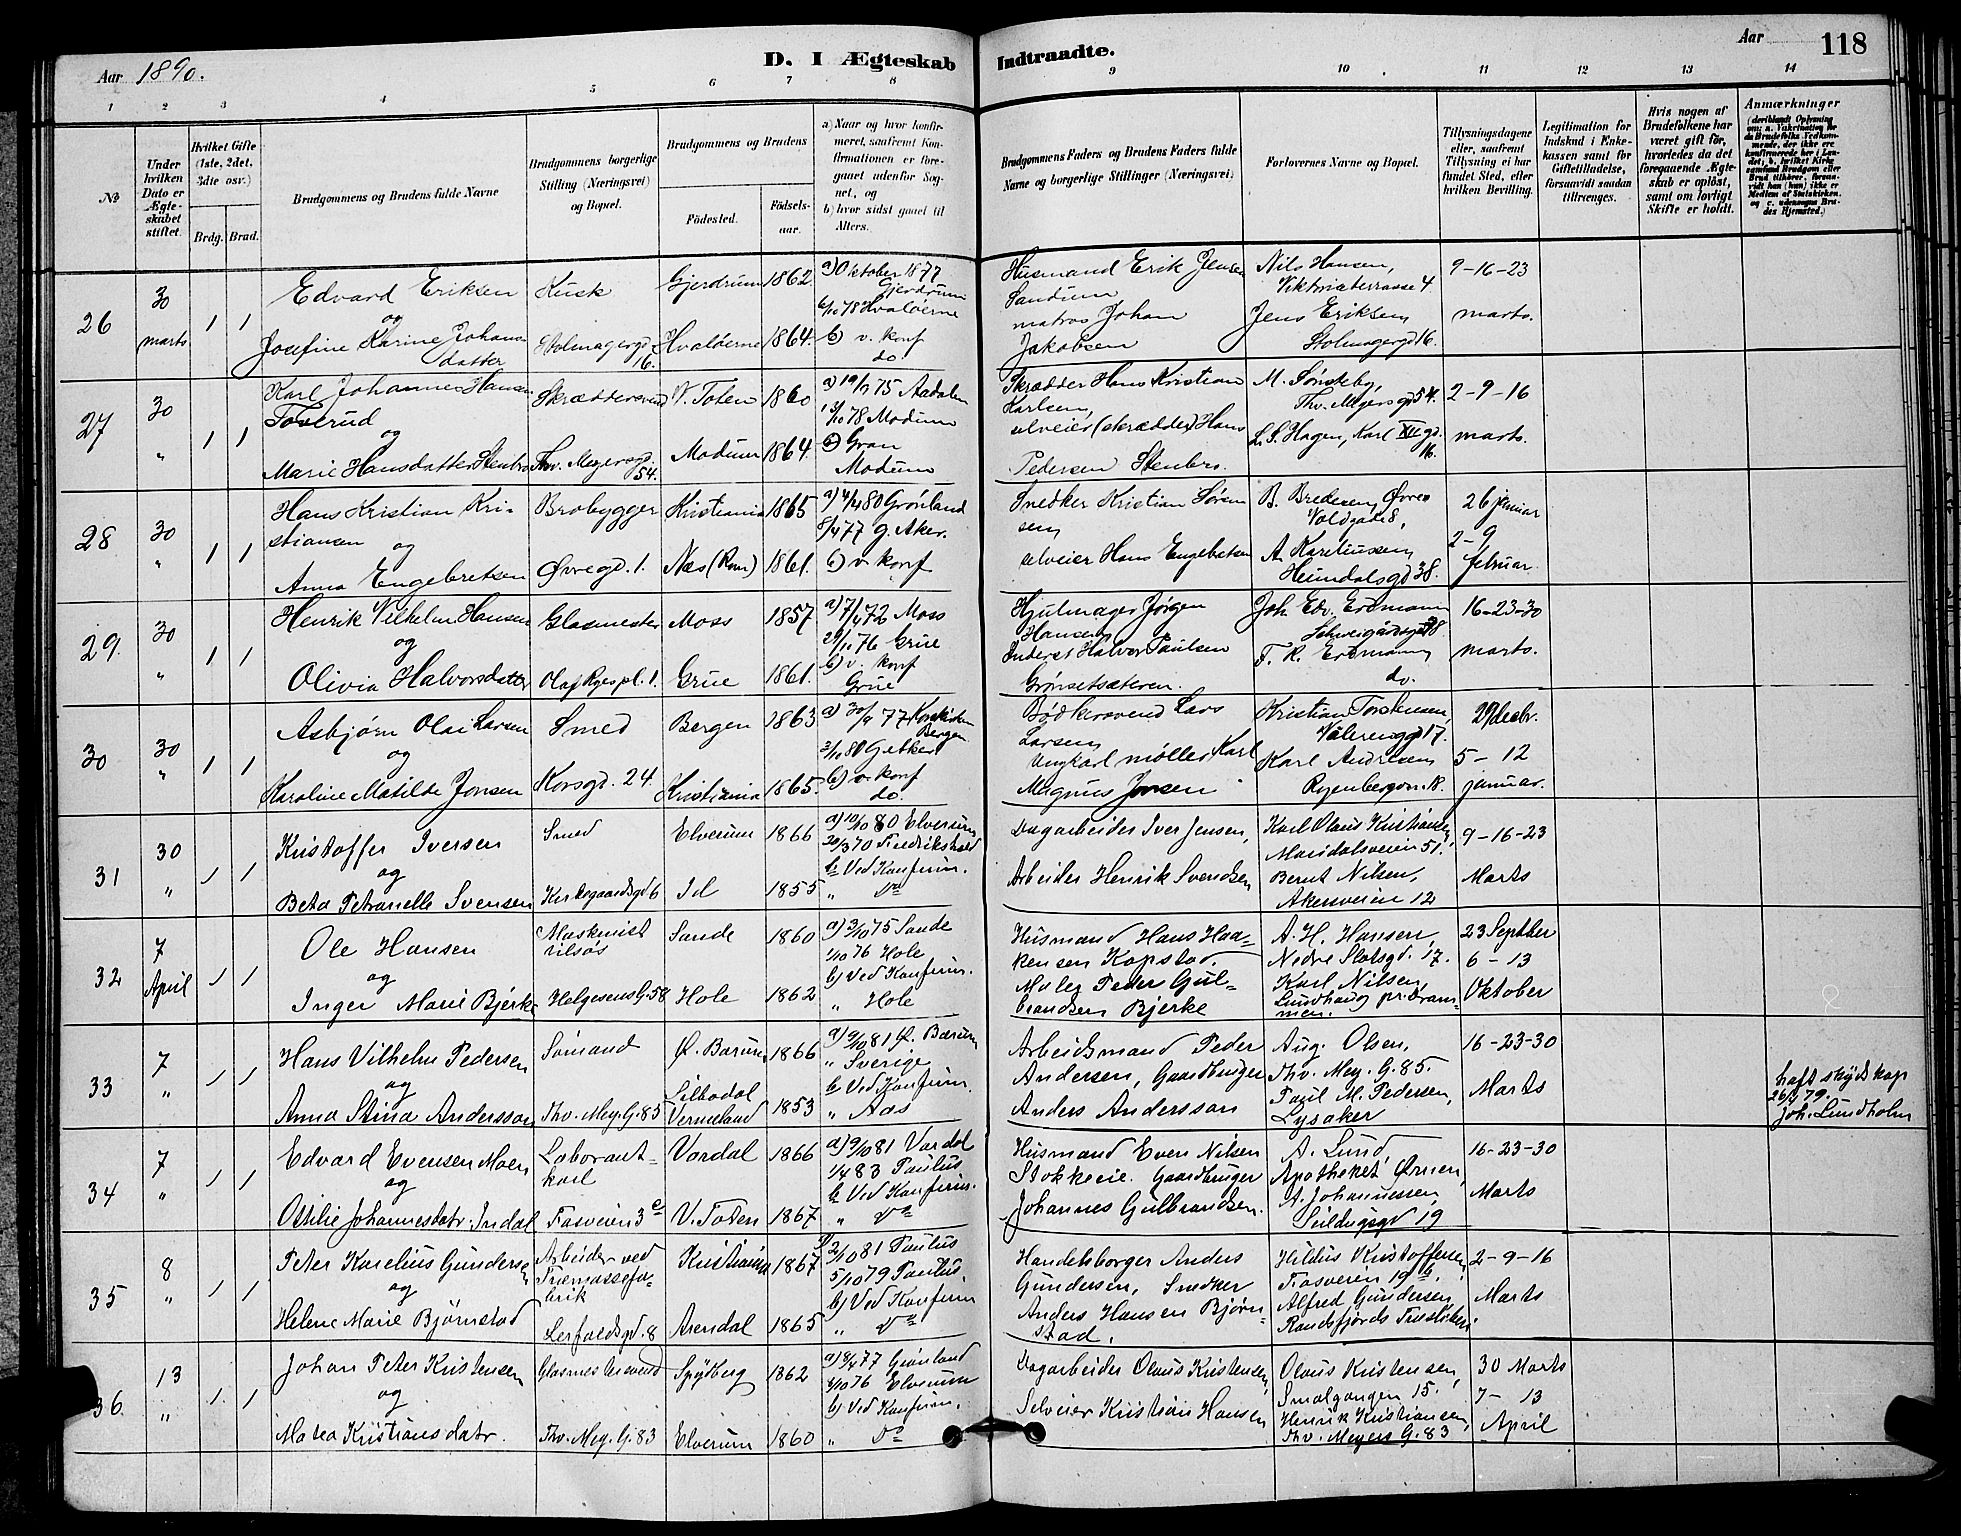 Aar 1890.
D. I Ægteskab Indtraadte.
Aar 118
1 2 3 4 5 6 7 8 9 10 11 12 13 14
№
Under hvilken Dato er Ægteskabet stiftet.
Hvilket Gifte (1ste, 2det, 3die osv.)
Brdg. Brud.
Brudgommens og Brudens fulde Navne
Brudgommens borgerlige Stilling (Næringsvei) og Bopæl.
Brudgommens og Brudens
Fødested.
Fødselsaar.
a) Naar og hvor konfirmeret, saafremt Konfirmationen er foregaaet udenfor Sognet, og
b) hvor sidst gaaet til Alters.
Brudgommens Faders og Brudens Faders fulde Navne og borgerlige Stillinger (Næringsvei)
Forlovernes Navne og Bopæl.
Tillysningsdagene eller, saafremt Tillysning ei har fundet Sted, efter hvilken Bevilling.
Legitimation for Indskud i Enkekassen samt for Giftetilladelse, forsaavidt saadan tiltrænges.
Hvis nogen af Brudefolkene har været gift før, hvorledes da det foregaaende Ægteskab er opløst, samt om lovligt Skifte er holdt.
Anmærkninger
26 30 marts 1 1
Edvard Eriksen
og
Josefine Karine Johansdatter
Kusk
Stolmagergd. 16.
Gjerdrum 1862
Hvaløerne 1864.
a) Oktober 1877 Gjerdrum
6/10 78 Hvaløerne
b) v. konf
do
Husmand Erik Jensen
Sandum
matros Johan
Jakobsen
Nils Hansen,
Viktoriaterrasse 4.
Jens Eriksen
Stolmagergd 16.
9-16-23
marts.
27 30 " 1 1
Karl Johannes Hansen
Toverud
og
Marie Hansdatter Stenbro
Skræddersvend
Thv. Meyersgd. 54.
V. Toten 1860
Modum 1864.
75 Aadalen
78 Modum
b) Gran
Modum
Skrædder Hans Kristian
Karlsen,
selveier (skrædder) Hans
Pedersen Stenbro.
M. Sønsteby,
Thv. Meyersgd 54.
L. S. Hagen, Karl XII gd. 16.
2-9-16
marts.
28 30 " 1 1
Hans Kristian Kristiansen
og
Anna Engebretsen
Brobygger
Øvregd. 1.
Kristiania 1865
Næs (Rom) 1861.
a) 4/4 80 Grønland
8/4 77 g. Aker.
b) v. konf
Snedker Kristian Sørensen
selveier Hans Engebretsen
B. Bredesen, Øvre
Voldgade 8,
A. Kareliussen,
Heimdalsgd 38.
26 januar
2-9
februar.
29. 30 " 1 1
Henrik Vilhelm Hansen
og
Olivia Halvorsdatter
Glasmester
Olaf Ryes pl. 1.
Moss 1857
Grue 1861.
a) 7/4 72 Moss
29/10 76 Grue
b) v. konf
Grue
Hjulmager Jørgen
Hansen
Inderst Halvor Paulsen
Grønsetsæteren.
Joh. Edv. Erdmann
Schweigårdsgd 78.
F. R. Erdmann
do.
16-23-30
marts.
30 30 " 1 1
Asbjørn Olai Larsen
og
Karoline Matilde Jonsen
Smed
Korsgd. 24.
Bergen 1863
Kristiania 1865.
a) 30/9 77 Korskirken
Bergen
3/10 80 G. Aker
b) v. konf
do.
Bødkersvend Lars
Larsen
Ungkarl møller Karl
Magnus Jonsen
Kristian Torstensen,
Vålerenggd 17.
Karl Andresen
Ryenbergvn. 18.
29 decbr.
5-12
januar.
31 30 " 1 1
Kristoffer Iversen
og
Beta Petronelle Svensen
Smed
Kirkegaardsgd 6
Elverum 1866
Id 1855
a) 10/10 80 Elverum
20/3 70 Fredrikshald
b) Ved Konfirm.
" Do
Dagarbeider Iver Jensen,
Arbeider Henrik Svendsen
Karl Olaus Kristiansen,
Maridalsveien 51.
Bernt Nilsen,
Akersveien 12
9-16-23
Marts
32 7 April 1 1
Ole Hansen
og
Inger Marie Bjerke
Maskinist
tilsøs
Helgesens G. 58
Sande 1860
Hole 1862
a) 3/10 75 Sande
1/10 76 Hole
b) Ved Konfirm.
" Hole
Husmand Hans Haakensen Kopstad.
Maler Peder Gulbrandsen Bjerke
A. H. Hansen,
Nedre Slotsgd. 17.
Karl Nilsen,
Lundhaug pr. Drammen.
23 Septber
6-13
Oktober
33 7 " 1 1
Hans Vilhelm Pedersen
og
Anna Stina Andersson
Sømand
Thv. Mey. G. 85
Ø. Bærum 1866
Lilbodal
Vermeland 1853
a) 9/10 81 Ø. Bærum
" Sverige
b) Ved Konfirm.
" Aas
Arbeidsmand Peder
Andersen, Gaardbruger
Anders Andersson
Aug. Olsen,
Thv. Mey. G. 85.
Paul M. Pedersen,
Lysaker
16-23-30
Marts
haft skydskop
26/4 79.
Joh. Lundholm
34 7 " 1 1
Edvard Evensen Moen
og
Ottilie Johannesdatr. Indal
Laborantkarl
Fosveien 3 c
Vardal 1866
V. Toten 1867
a) 9/10 81 Vardal
1/4 83 Paulus
b) Ved Konfirm.
" Do
Husmand Even Nilsen
Stokkeeie. Gaardbruger
Johannes Gulbrandsen.
A. Lund,
Apotheket Ørnen,
A. Johannessen,
Seildugsgd 19
16-23-30
Marts
35 8 " 1 1
Peter Karelius Gundersen
og
Helene Marie Bjørnstad
Arbeider ved
Træmassefabrik
Lerfaldsgd. 8
Kristiania 1867
Arendal 1865
a) 2/10 81 Paulus
5/10 79 Paulus.
b) Ved Konfirm
" Do
Handelsborger Anders
Gundersen, Snedker
Anders Hansen Bjørnstad.
Hildus Kristoffersen,
Fosveien 19 b.
Alfred Gundersen
Randsfjords Træsliberi
2-9-16
Marts
36. 13 " 1 1
Johan Peter Kristensen
og
Matea Kristiansdatr.
Glasmestersvend
Thv. Mey. G. 83
Spydberg 1862
Elverum 1860
a) 8/4 77 Grønland
1/10 76 Elverum
b) Ved Konfirm.
" Do
Dagarbeider Olaus Kristensen,
Selveier Kristian Hansen
Olaus Kristensen,
Smalgangen 15.
Henrik Kristiansen,
Thv. Meyers G. 83
30 Marts
7-13
April